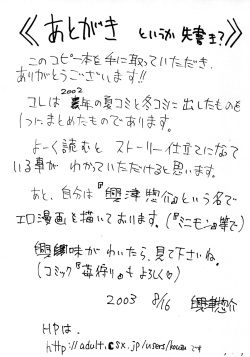 《あとがき というか 先書き?》
このコピー本を手に取っていただき、
ありがとうございます!!
2002
コレは 昨年の夏コミと冬コミに出したものを
1つにまとめたものであります。
よーく読むと ストーリー仕立てになって
いる事が わかっていただけると思います。
あと、自分は『興津惣介』という名で
エロ漫画を描いております。(『ミニモン』等で)
興味がわいたら、見て下さいね。
(コミック『苺狩り』もよろしく♡)
2003 8/16 興津惣介
HPは、
http://adult.csx.jp/users/ です